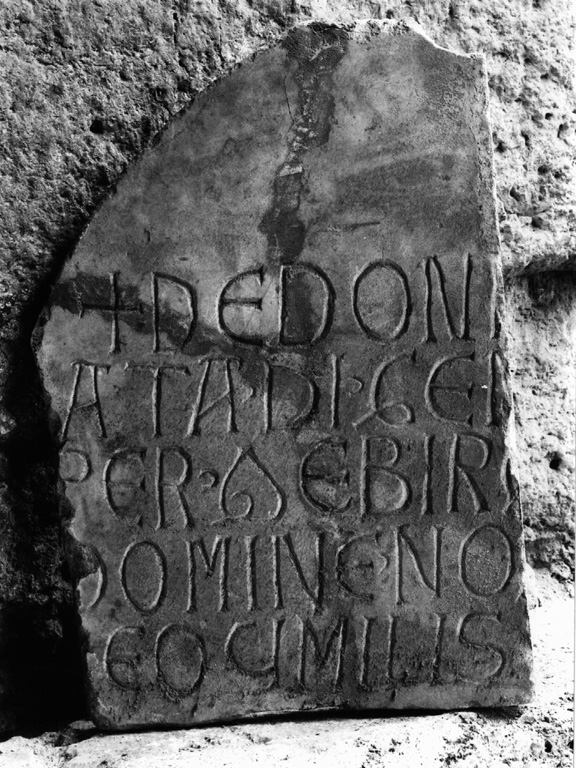 + DEDONI
ATA·DI·GEN
PER·❦EBIR
DOMINENO
EOUMILIS